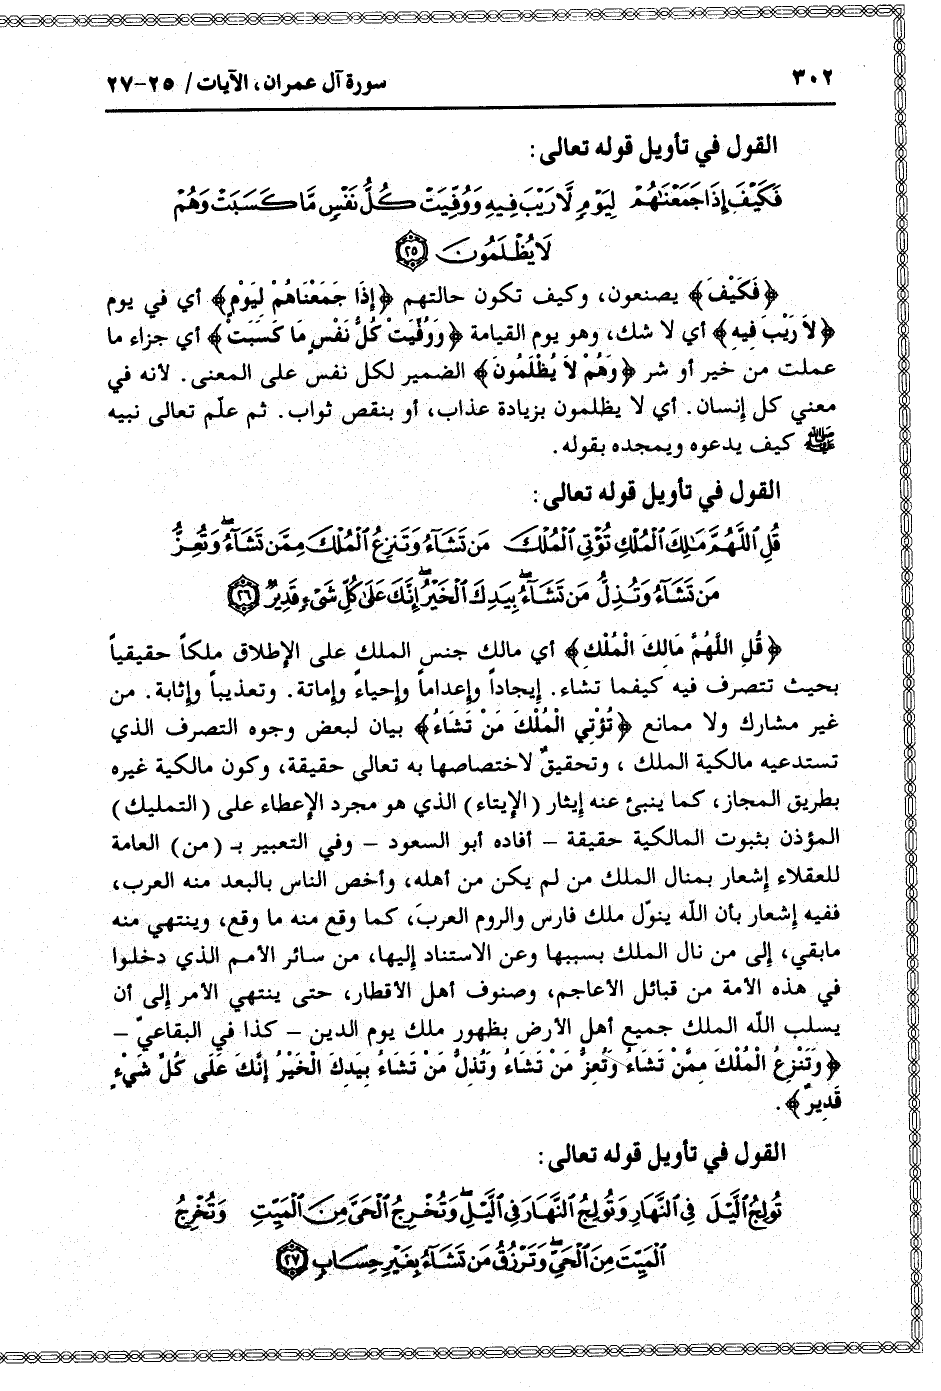 ٣٠٢ سورة آل عمران، الآيات/ ٢٥-٢٧
القول في تأويل قوله تعالى:
فَكَيْفَ إِذَا جَمَعْنَٰهُمْ لِيَوْمٍ لَّا رَيْبَ فِيهِ وَوُفِّيَتْ كُلُّ نَفْسٍ مَّا كَسَبَتْ وَهُمْ
لَا يُظْلَمُونَ ٢٥
﴿فَكَيْفَ﴾ يصنعون، وكيف تكون حالتهم ﴿إِذَا جَمَعْنَاهُمْ لِيَوْمٍ﴾ أي في يوم
﴿لاَ رَيْبَ فِيهِ﴾ أي لا شك، وهو يوم القيامة ﴿وَوُفِّيَتْ كُلُّ نَفْسٍ مَا كَسَبَتْ﴾ أي جزاء ما
عملت من خير أو شر ﴿وَهُمْ لاَ يُظْلَمُونَ﴾ الضمير لكل نفس على المعنى. لأنه في
معني كل إنسان. أي لا يظلمون بزيادة عذاب، أو بنقص ثواب. ثم علّم تعالى نبيه
ﷺ كيف يدعوه ويمجده بقوله.
القول في تأويل قوله تعالى:
قُلِ ٱللَّهُمَّ مَٰلِكَ ٱلْمُلْكِ تُؤْتِى ٱلْمُلْكَ مَن تَشَآءُ وَتَنزِعُ ٱلْمُلْكَ مِمَّن تَشَآءُ ۖ وَتُعِزُّ
مَن تَشَآءُ وَتُذِلُّ مَن تَشَآءُ ۖ بِيَدِكَ ٱلْخَيْرُ ۖ إِنَّكَ عَلَىٰ كُلِّ شَىْءٍ قَدِيرٌ ٢٦
﴿قُلِ اللَّهُمَّ مَالِكَ الْمُلْكِ﴾ أي مالك جنس الملك على الإطلاق ملكاً حقيقياً
بحيث تتصرف فيه كيفما تشاء. إيجاداً وإعداماً وإحياءً وإماتة. وتعذيباً وإثابة. من
غير مشارك ولا ممانع ﴿تُؤْتِي الْمُلْكَ مَنْ تَشَاءُ﴾ بيان لبعض وجوه التصرف الذي
تستدعيه مالكية الملك ، وتحقيقٌ لاختصاصها به تعالى حقيقة، وكون مالكية غيره
بطريق المجاز، كما ينبئ عنه إيثار (الإيتاء) الذي هو مجرد الإعطاء على (التمليك)
المؤذن بثبوت المالكية حقيقة - أفاده أبو السعود - وفي التعبير بـ (من) العامة
للعقلاء إشعار بمنال الملك من لم يكن من أهله، وأخص الناس بالبعد منه العرب،
ففيه إشعار بأن الله ينوّل ملك فارس والروم العربَ، كما وقع منه ما وقع، وينتهي منه
مابقي، إلى من نال الملك بسببها وعن الاستناد إليها، من سائر الأمم الذي دخلوا
في هذه الأمة من قبائل الأعاجم، وصنوف أهل الأقطار، حتى ينتهي الأمر إلى أن
يسلب الله الملك جميع أهل الأرض بظهور ملك يوم الدين - كذا في البقاعيّ -
﴿وَتَنْزِعُ الْمُلْكَ مِمَّنْ تَشَاءُ وَتُعِزُّ مَنْ تَشَاءُ وَتُذِلُّ مَنْ تَشَاءُ بِيَدِكَ الْخَيْرُ إِنَّكَ عَلَى كُلِّ شَيْءٍ
قَدِيرٌ﴾.
القول في تأويل قوله تعالى:
تُولِجُ ٱلَّيْلَ فِى ٱلنَّهَارِ وَتُولِجُ ٱلنَّهَارَ فِى ٱلَّيْلِ ۖ وَتُخْرِجُ ٱلْحَىَّ مِنَ ٱلْمَيِّتِ وَتُخْرِجُ
ٱلْمَيِّتَ مِنَ ٱلْحَىِّ ۖ وَتَرْزُقُ مَن تَشَآءُ بِغَيْرِ حِسَابٍ ٢٧